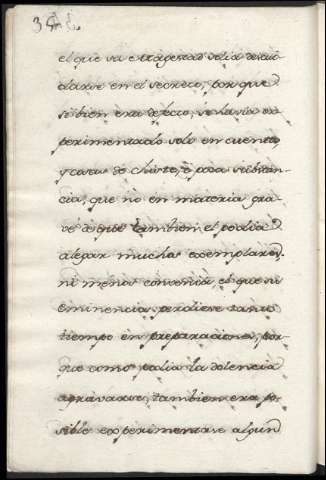 el que va extragesad solia descui-
darse en el secreto, porque
si bien era defecto, se havia ex-
perimentado solo en cuentos
y cosas de chiste, ò poca substan-
cia, que no en materia gra-
ve de que tambien el podia
alegar muchos exemplares,
ni menos convenia el que su
eminencia perdiese tanto
tiempo en preparaciones, por-
que como podia la dolencia
agravarse, tambien era po-
sible experimentase algun